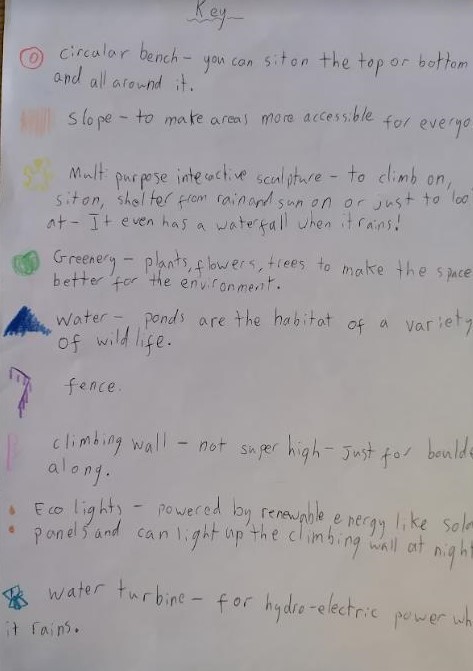 Key
circular bench - you can sit on the top or bottom
and all around it.
Slope - to make areas more accessible for everyo
Multi purpose interactive sculpture - to climb on,
sit on, shelter from rain and sun on or just to loo
at - It even has a waterfall when it rains!
Greenery - plants, flowers, trees to make the space
better for the environment.
water - ponds are the habitat of a variety
of wildlife.
fence.
climbing wall - not super high - just for bould
along.
Eco lights - powered by renewable energy like sola
panels and can light up the climbing wall at night
water turbine - for hydro-electric power wh
it rains.